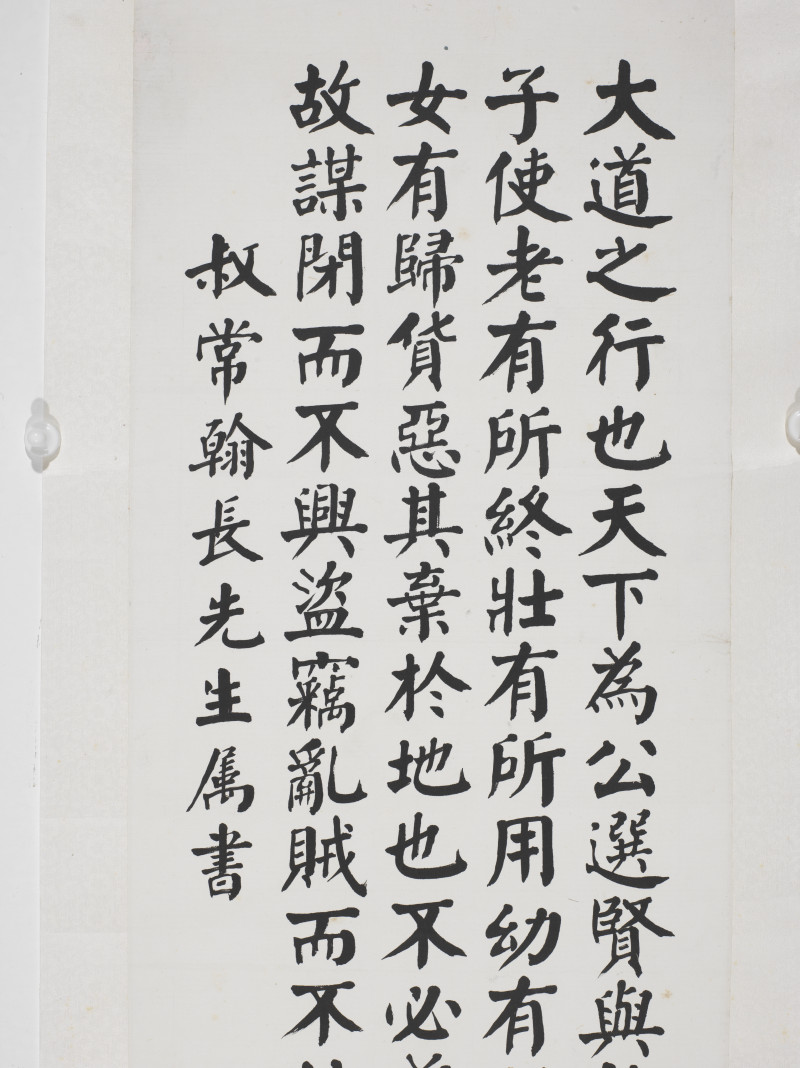 大道之行也天下為公選賢與
子使老有所終壯有所用幼有
女有歸貨惡其棄於地也不必
故謀閉而不興盜竊亂賊而不
叔常翰長先生属書